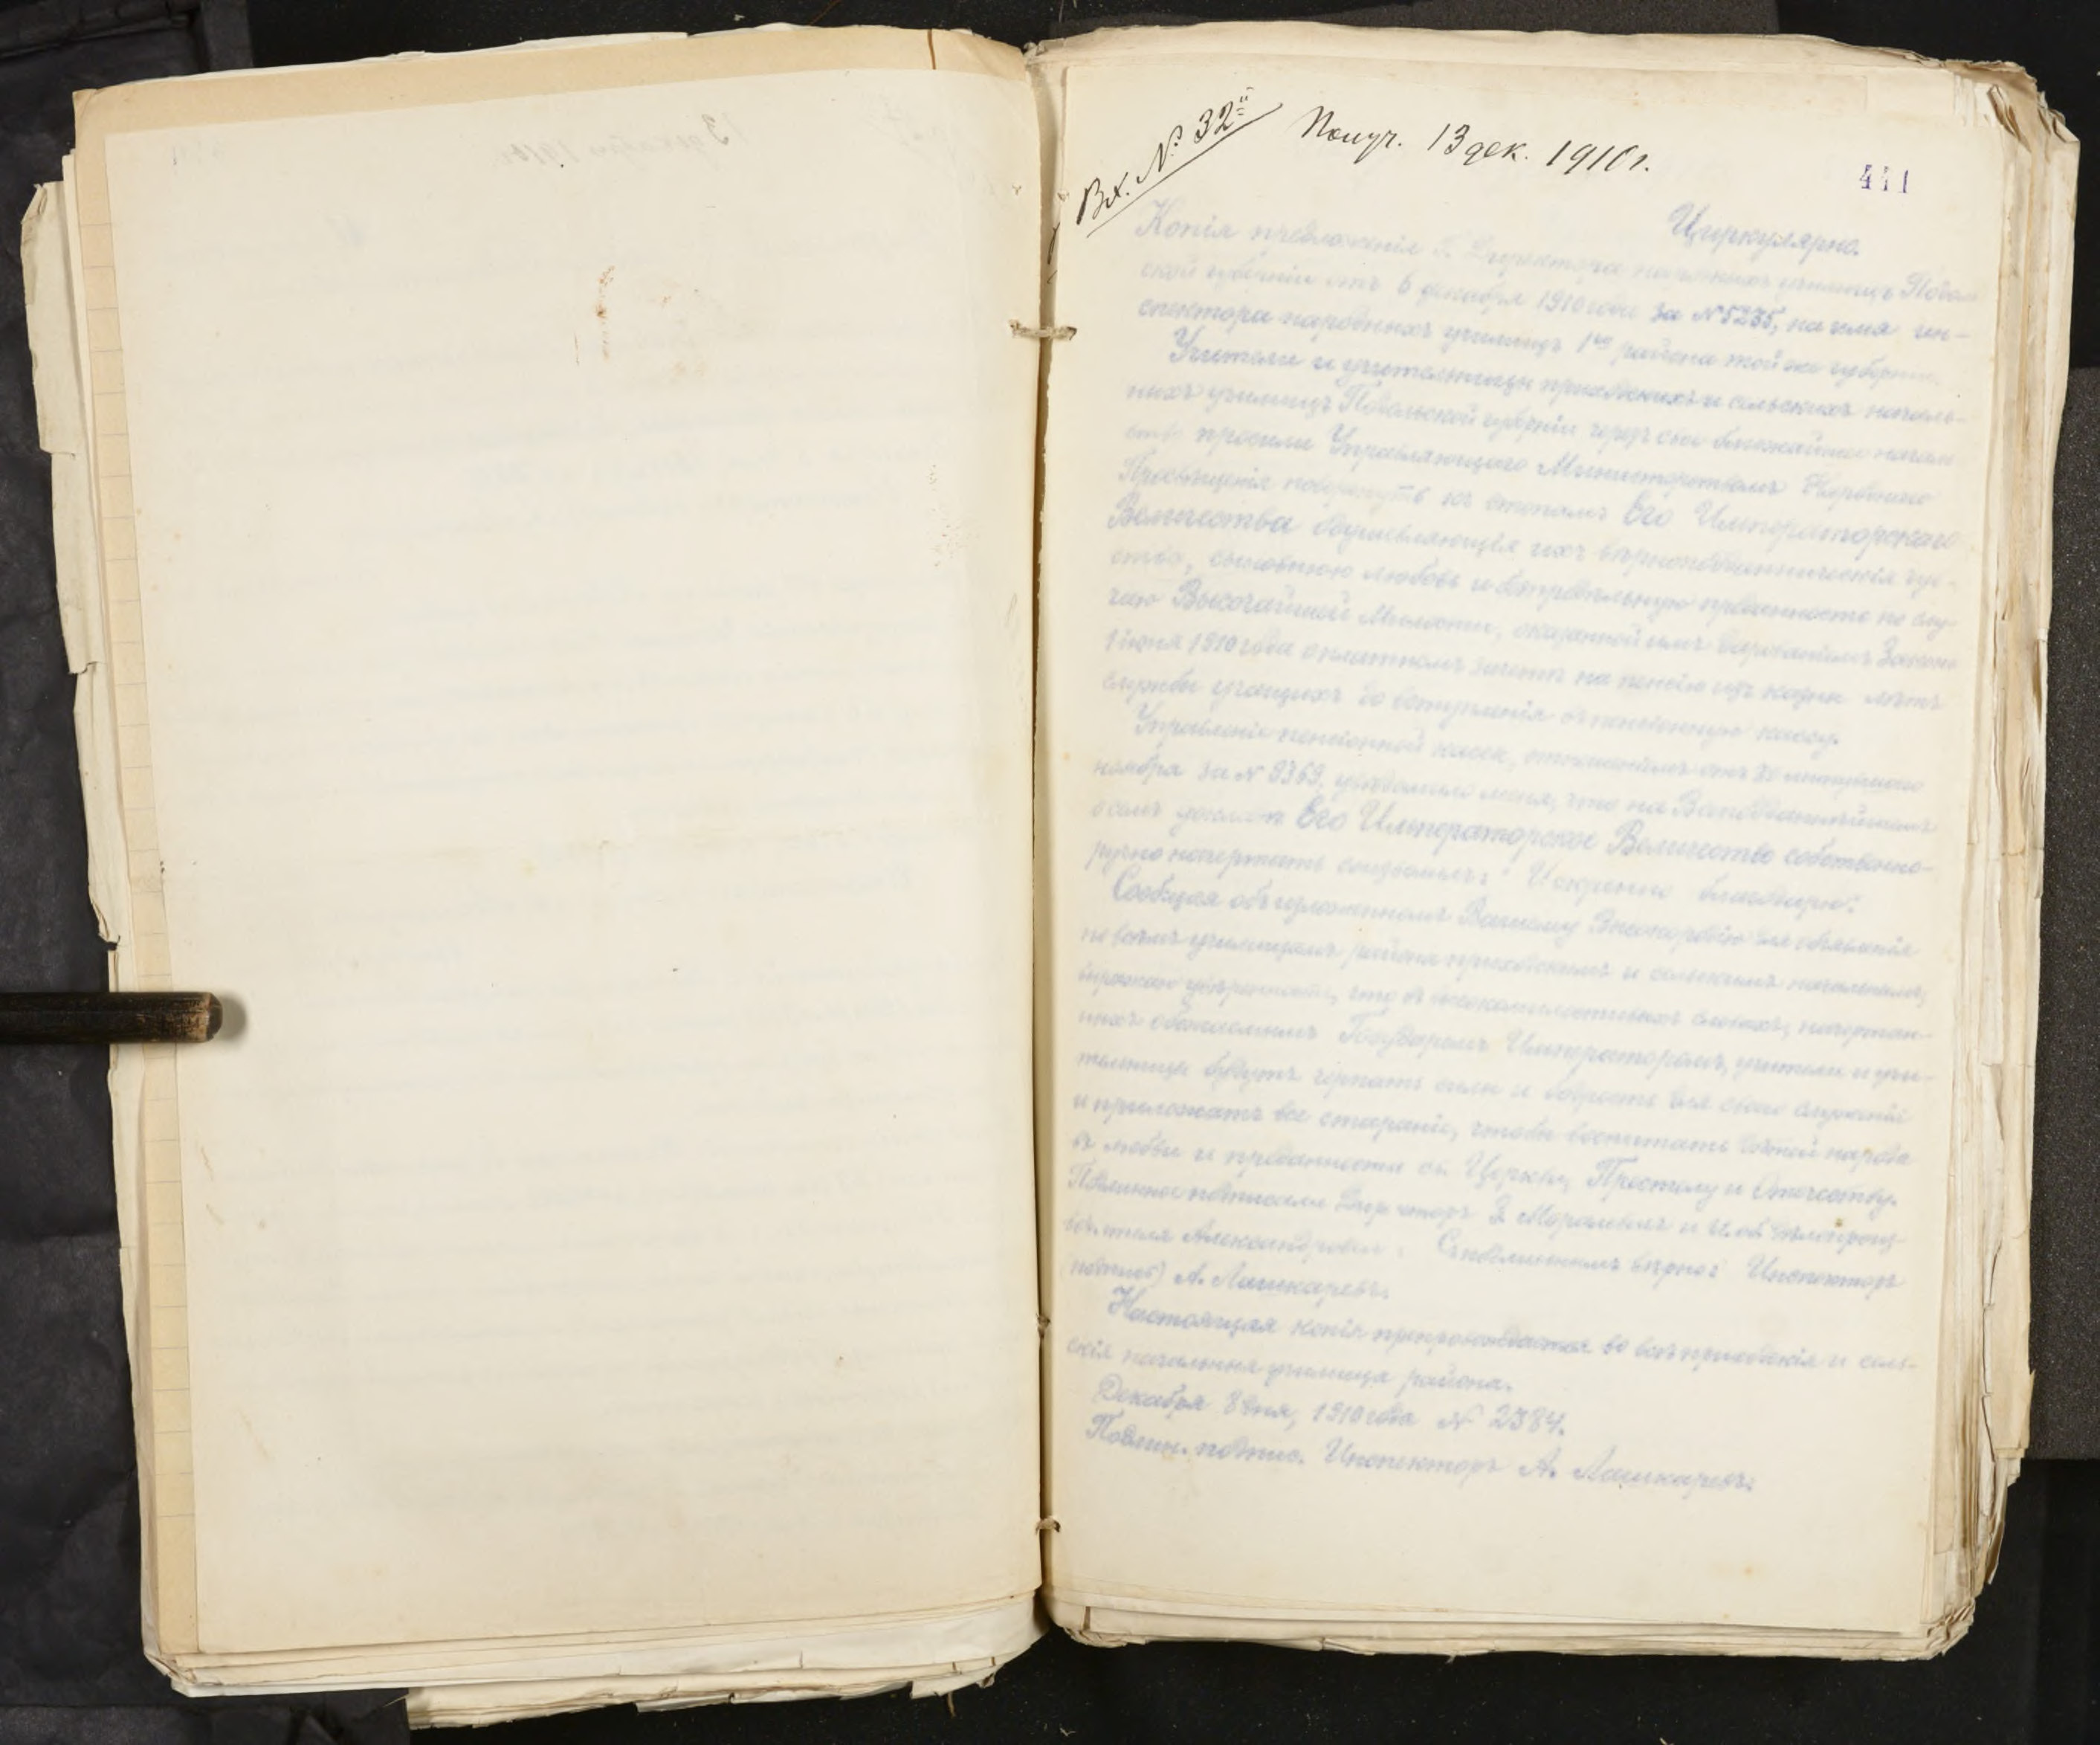 Вх. № 32
Получ. 13 дек. 1910 г.
441
Циркулярно.
Копія предложенія Г. Директора народныхъ училищъ Подоль-
ской губерніи отъ 6 декабря 1910 года за № 5235, на имя ин-
спектора народныхъ училищъ 1го района той же губерніи.
Учители и учительницы приходскихъ и сельскихъ началь-
ныхъ училищъ Подольской губерніи черезъ свое ближайшее началь-
ство просили Управляющаго Министерствомъ Народнаго
Просвѣщенія повергнуть къ стопамъ Его Императорскаго
Величества одушевляющія ихъ вѣрноподданническія чув-
ства, сыновнюю любовь и безпредѣльную преданность по слу-
чаю Высочайшей Милости, оказанной имъ дарованіемъ Закона
1 іюня 1910 года о платномъ зачетѣ на пенсію изъ казны лѣтъ
службы учащихъ до вступленія въ пенсіонную кассу.
Управленіе пенсіонной кассы, отношеніемъ отъ 30 минувшаго
ноября за № 9369, увѣдомило меня, что на Всеподданнѣйшемъ
о семъ докладѣ Его Императорское Величество собственно-
ручно начертать соизволилъ: "Искренно благодарю".
Сообщая объ изложенномъ Вашему Высокородію для объявленія
по всѣмъ училищамъ района приходскимъ и сельскимъ начальнымъ,
выражаю увѣренность, что въ высокомилостивыхъ словахъ, начертан-
ныхъ обожаемымъ Государемъ Императоромъ, учители и учи-
тельницы будутъ черпать силы и бодрость для своего служенія
и приложатъ все стараніе, чтобы воспитать дѣтей народа
въ любви и преданности св. Церкви, Престолу и Отечеству.
Подлинное подписали Директоръ и и. об. дѣлопроиз-
водителя Александровичъ. Съ подлиннымъ вѣрно: Инспекторъ
(подпись) А. Лашкаревъ.
Настоящая копія препровождается во всѣ приходскія и сель-
скія начальныя училища района.
Декабря 8 дня, 1910 года № 2384.
Подлин. подпис. Инспекторъ А. Лашкаревъ.